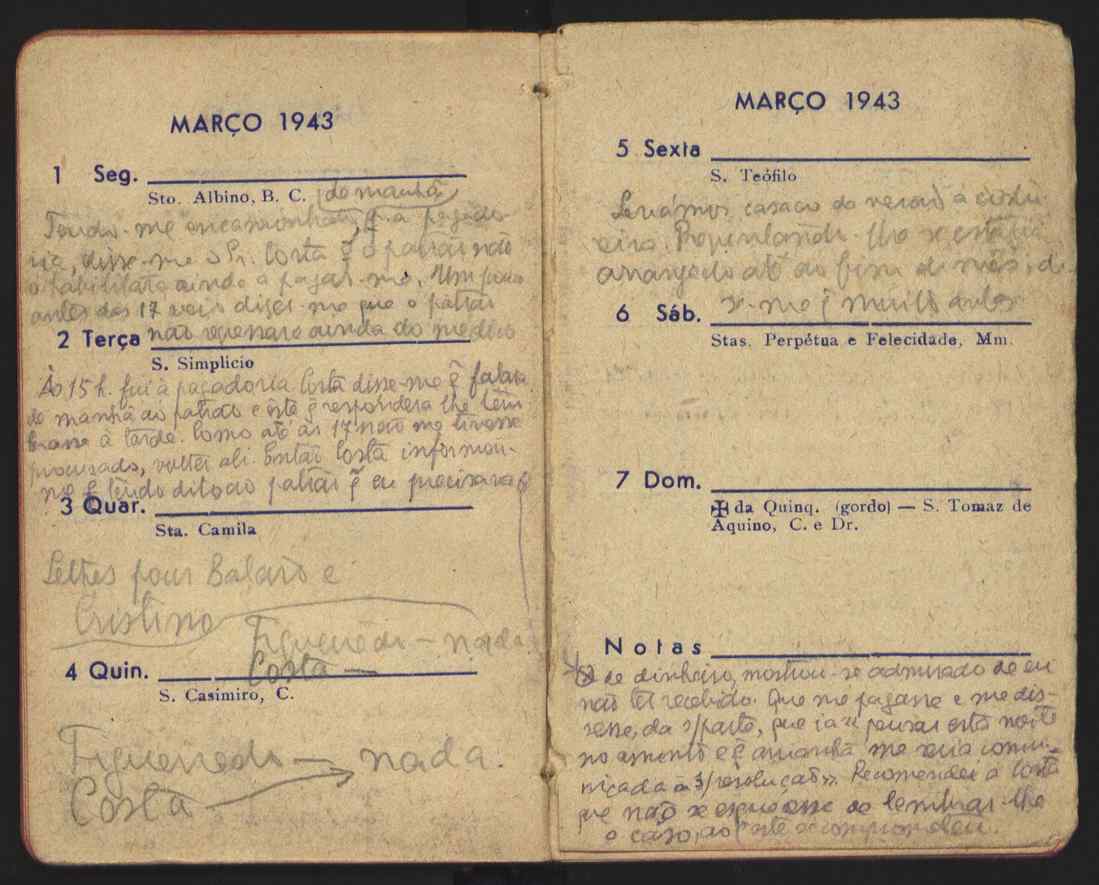 MARÇO 1943
1 Seg.
Sto. Albino, B. C. (de manhã)
Tendo-me encaminhado, p.ª a pagado-
ria, disse-me o Sr. Costa q̃ o patrão não
o habilitara ainda a pagar-me. Um pouco
antes das 17 veio dizer-me que o patrão
não regressara ainda do médico
2 Terça
S. Simplicio
Às 15 h. fui à pagadoria. Costa disse-me q̃ falara
de manhã ao patrão e êste q̃ respondera lhe lem-
brasse à tarde. Como até às 17 não me tivesse
procurado, voltei ali. Então Costa informou-
me q̃ tendo dito ao patrão q̃ eu precisava
3 Quar.
Sta. Camila
Balarò e
Cristino
Figueiredo — nada
Costa —
4 Quin.
S. Casimiro, C.
Figueiredo — nada.
Costa
MARÇO 1943
5 Sexta
S. Teófilo
Levámos casaco de verão à costu-
eira. estaria
arranjado até ao fim do mês, di
se-me q̃ muito antes
6 Sáb.
Stas. Perpétua e Felecidade, Mm.
7 Dom.
✠ da Quinq. (gordo) — S. Tomaz de
Aquino, C. e Dr.
Notas
de dinheiro, mostrou-se admirado de eu
não ter recebido. Que me pagasse e me dis-
sesse, da s/parte, que ia "pensar esta noite
no aumento e q̃ amanhã me seria comu-
nicada a s/resolução". Recomendei a Costa
que não se esquecesse de lembrar-lhe
o caso, ao